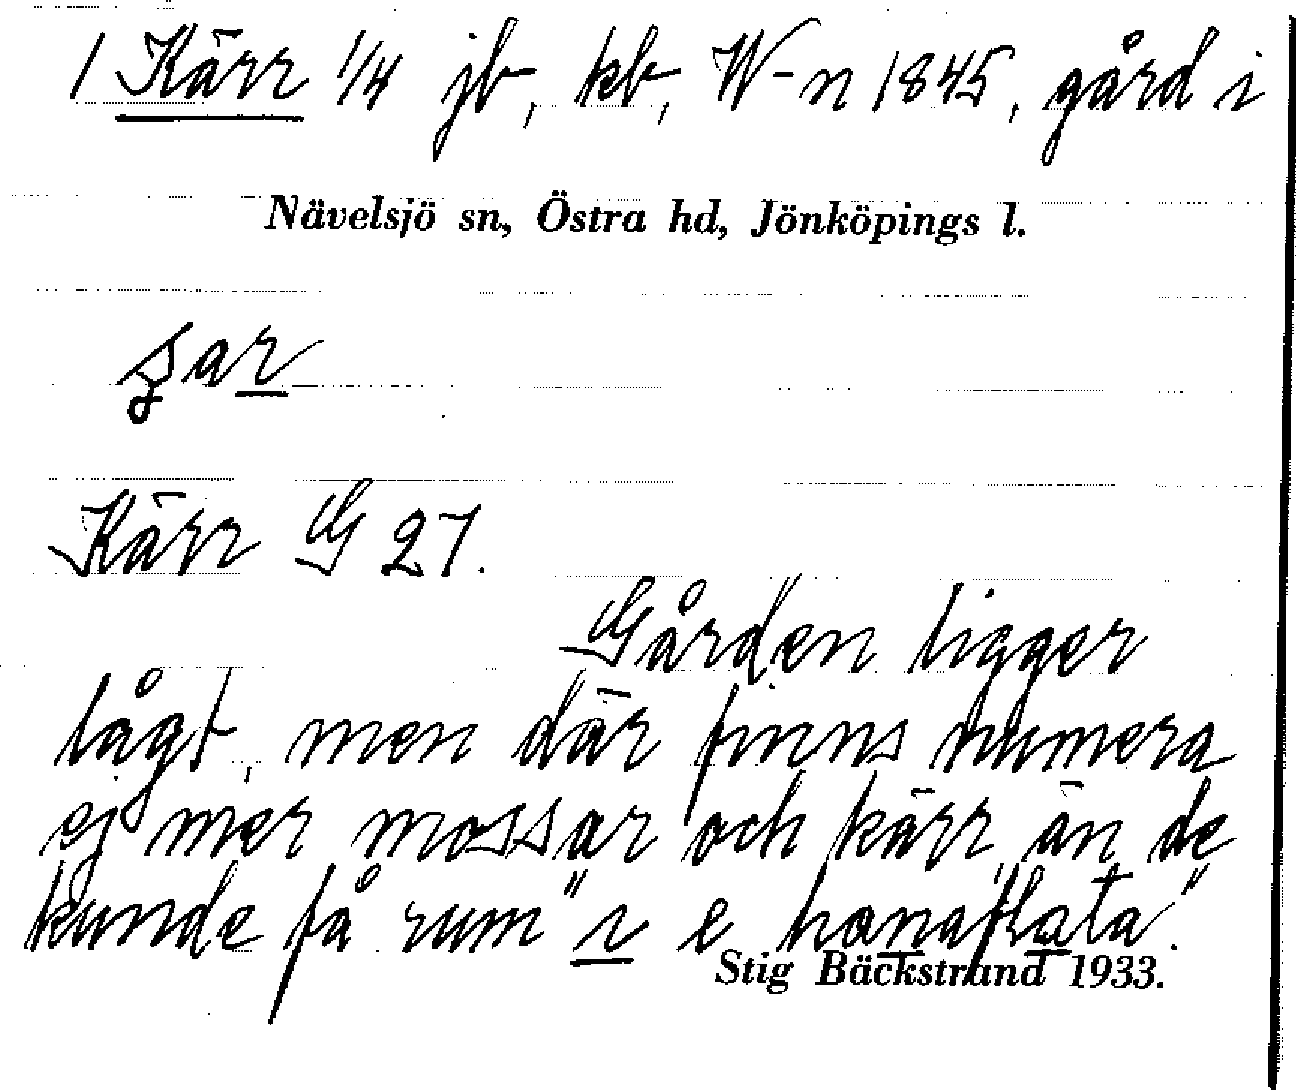 1 Kärr 1/4 jb, kb, W-n 1845, gård i
Nävelsjö sn, Östra hd, Jönköpings l.
Kärr G 27.
Gården ligger
lågt, men där finns numera
ej mer mossar och kärr, än de
kunde få rum "i e hanaflata".
Stig Bäckstrand 1933.